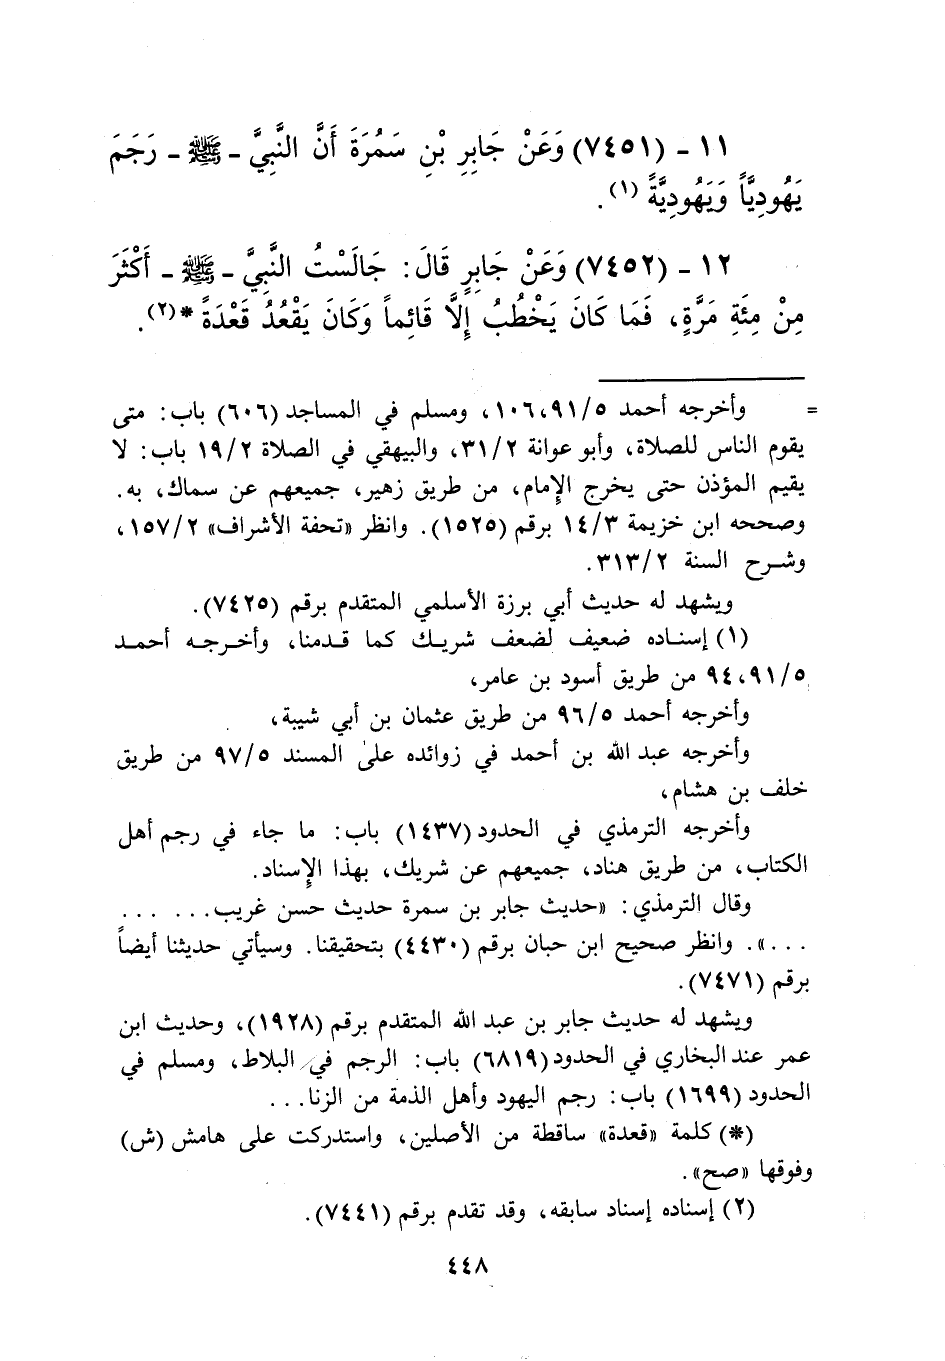 ١١ - (٧٤٥١) وَعَنْ جَابِرِ بْنِ سَمُرَةَ أَنَّ النَّبِيَّ - ﷺ - رَجَمَ
يَهُودِيَّاً وَيَهُودِيَّةً (١).
١٢ - (٧٤٥٢) وَعَنْ جَابِرٍ قَالَ: جَالَسْتُ النَّبِيَّ - ﷺ - أَكْثَرَ
مِنْ مِئَةِ مَرَّةٍ، فَمَا كَانَ يَخْطُبُ إِلَّا قَائِماً وَكَانَ يَقْعُدُ قَعْدَةً *(٢).
= وأخرجه أحمد ٩١/٥، ١٠٦، ومسلم في المساجد (٦٠٦) باب: متى
يقوم الناس للصلاة، وأبو عوانة ٣١/٢، والبيهقي في الصلاة ١٩/٢ باب: لا
يقيم المؤذن حتى يخرج الإمام، من طريق زهير، جميعهم عن سماك، به.
وصححه ابن خزيمة ١٤/٣ برقم (١٥٢٥). وانظر «تحفة الأشراف» ١٥٧/٢،
وشرح السنة ٣١٣/٢.
ويشهد له حديث أبي برزة الأسلمي المتقدم برقم (٧٤٢٥).
(١) إسناده ضعيف لضعف شريك كما قدمنا، وأخرجه أحمد
٩١/٥، ٩٤ من طريق أسود بن عامر،
وأخرجه أحمد ٩٦/٥ من طريق عثمان بن أبي شيبة،
وأخرجه عبد الله بن أحمد في زوائده على المسند ٩٧/٥ من طريق
خلف بن هشام،
وأخرجه الترمذي في الحدود (١٤٣٧) باب: ما جاء في رجم أهل
الكتاب، من طريق هناد، جميعهم عن شريك، بهذا الإسناد.
وقال الترمذي: «حديث جابر بن سمرة حديث حسن غريب... ... ...
...». وانظر صحيح ابن حبان برقم (٤٤٣٠) بتحقيقنا. وسيأتي حديثنا أيضاً
برقم (٧٤٧١).
ويشهد له حديث جابر بن عبد الله المتقدم برقم (١٩٢٨)، وحديث ابن
عمر عند البخاري في الحدود (٦٨١٩) باب: الرجم في البلاط، ومسلم في
الحدود (١٦٩٩) باب: رجم اليهود وأهل الذمة من الزنا...
(*) كلمة «قعدة» ساقطة من الأصلين، واستدركت على هامش (ش)
وفوقها «صح».
(٢) إسناده إسناد سابقه، وقد تقدم برقم (٧٤٤١).
٤٤٨